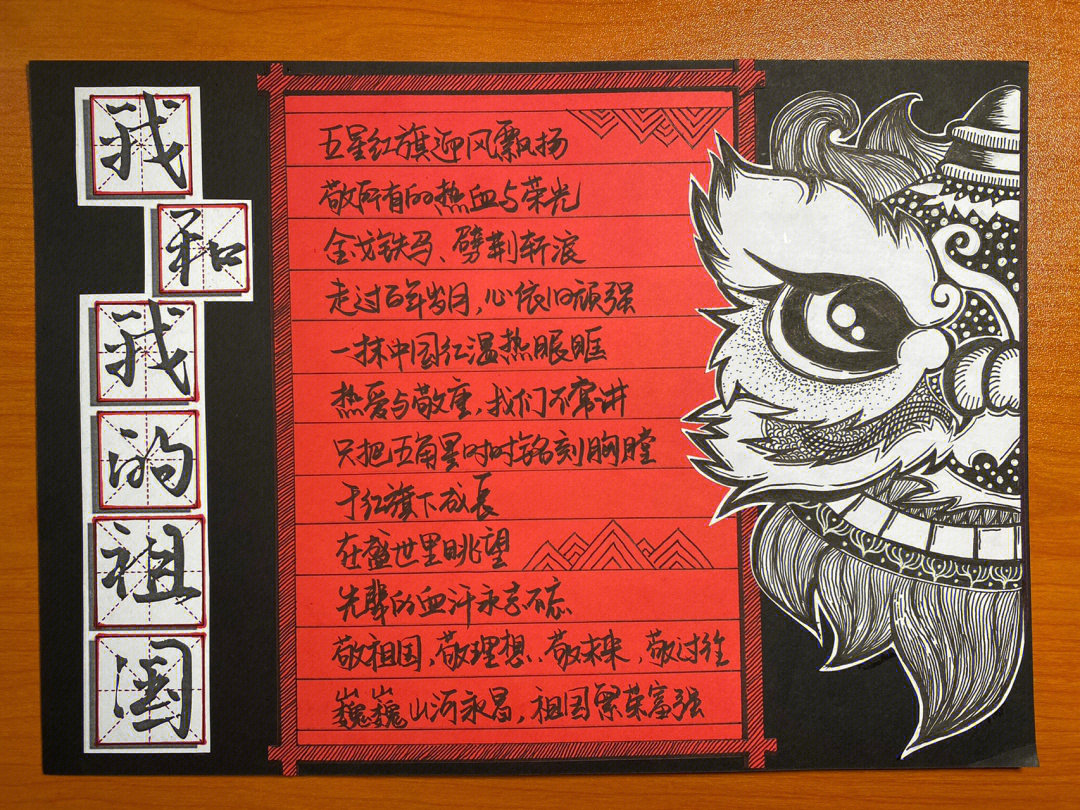 我和我的祖国
五星红旗迎风飘扬
敬所有的热血与荣光
金戈铁马、劈荆斩浪
走过百年岁月,心依旧顽强
一抹中国红温热眼眶
热爱与敬重,我们不常讲
只把五角星时时铭刻胸膛
于红旗下成长
在盛世里眺望
先辈的血汗永志不忘
敬祖国、敬理想、敬未来,敬过往
巍巍山河永昌,祖国繁荣富强